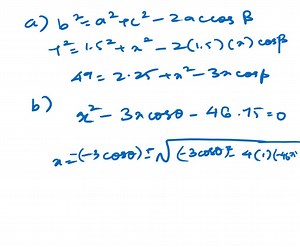 a) b² = a² + c² - 2ac cos β
7² = 1.5² + x² - 2(1.5)(x) cosβ
49 = 2.25 + x² - 3x cosβ
b) x² - 3x cosθ - 46.75 = 0
x = (-3cosθ) ± √(-3cosθ)² - 4(1)(-46.75